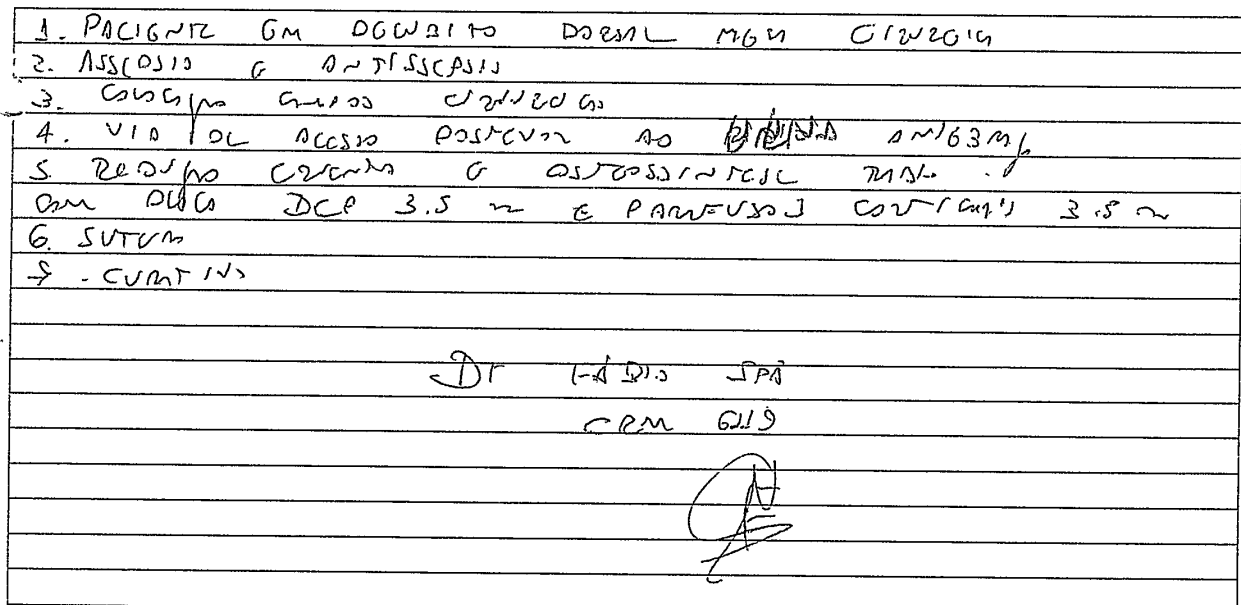 1. PACIENTE EM DECUBITO DORSAL MESA CIRURGICA
2. ASSEPSIA E ANTISSEPSIA
3. COLOCAÇÃO CAMPOS CIRURGICOS
4. VIA DE ACESSO POSTERIOR AO ANTEBRAÇO
5. REDUÇÃO CRUENTA E OSTEOSSINTESE
COM PLACA DCP 3.5 E PARAFUSOS CORTICAIS 3.5
6. SUTURA
7. CURATIVO
Dr FÁBIO SPÁ
CRM 6119